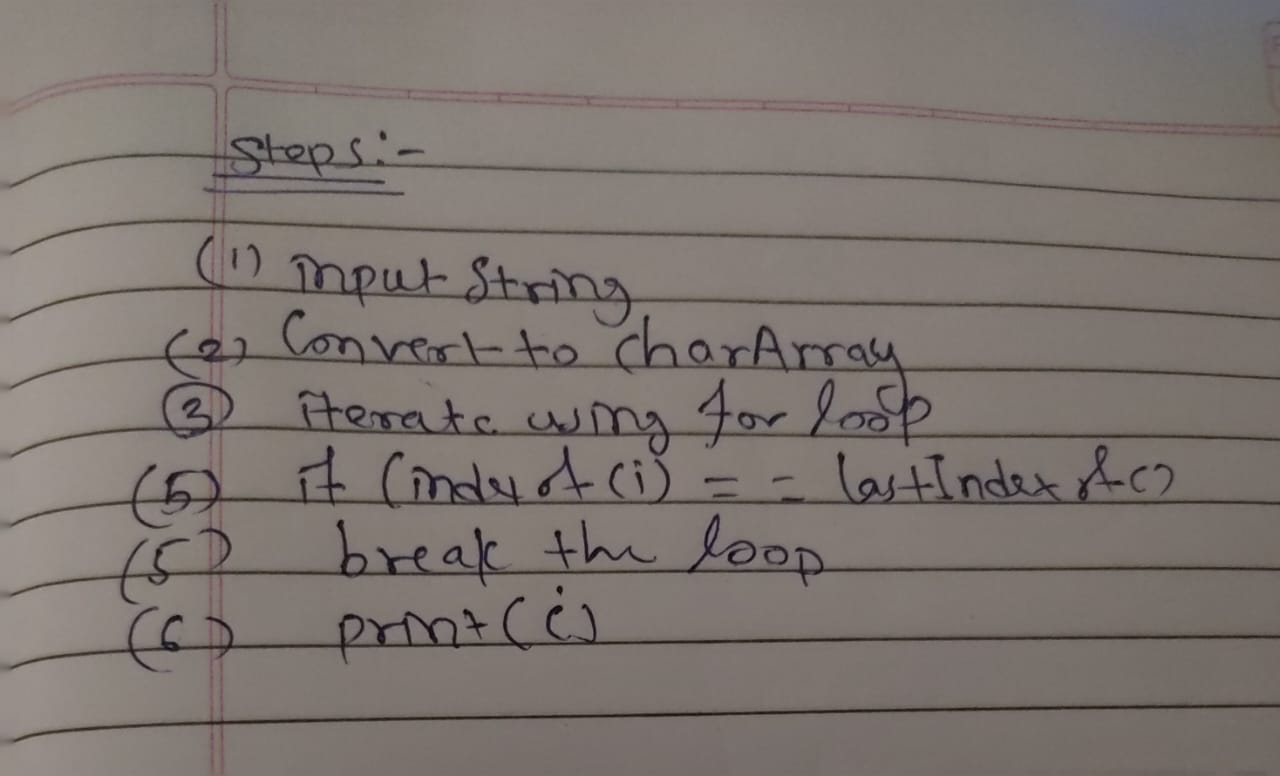 Steps:-
(1) input String
(2) Convert to charArray
(3) iterate using for loop
(5) if (index of (i) == lastIndex of ()
(5) break the loop
(6) print (i)